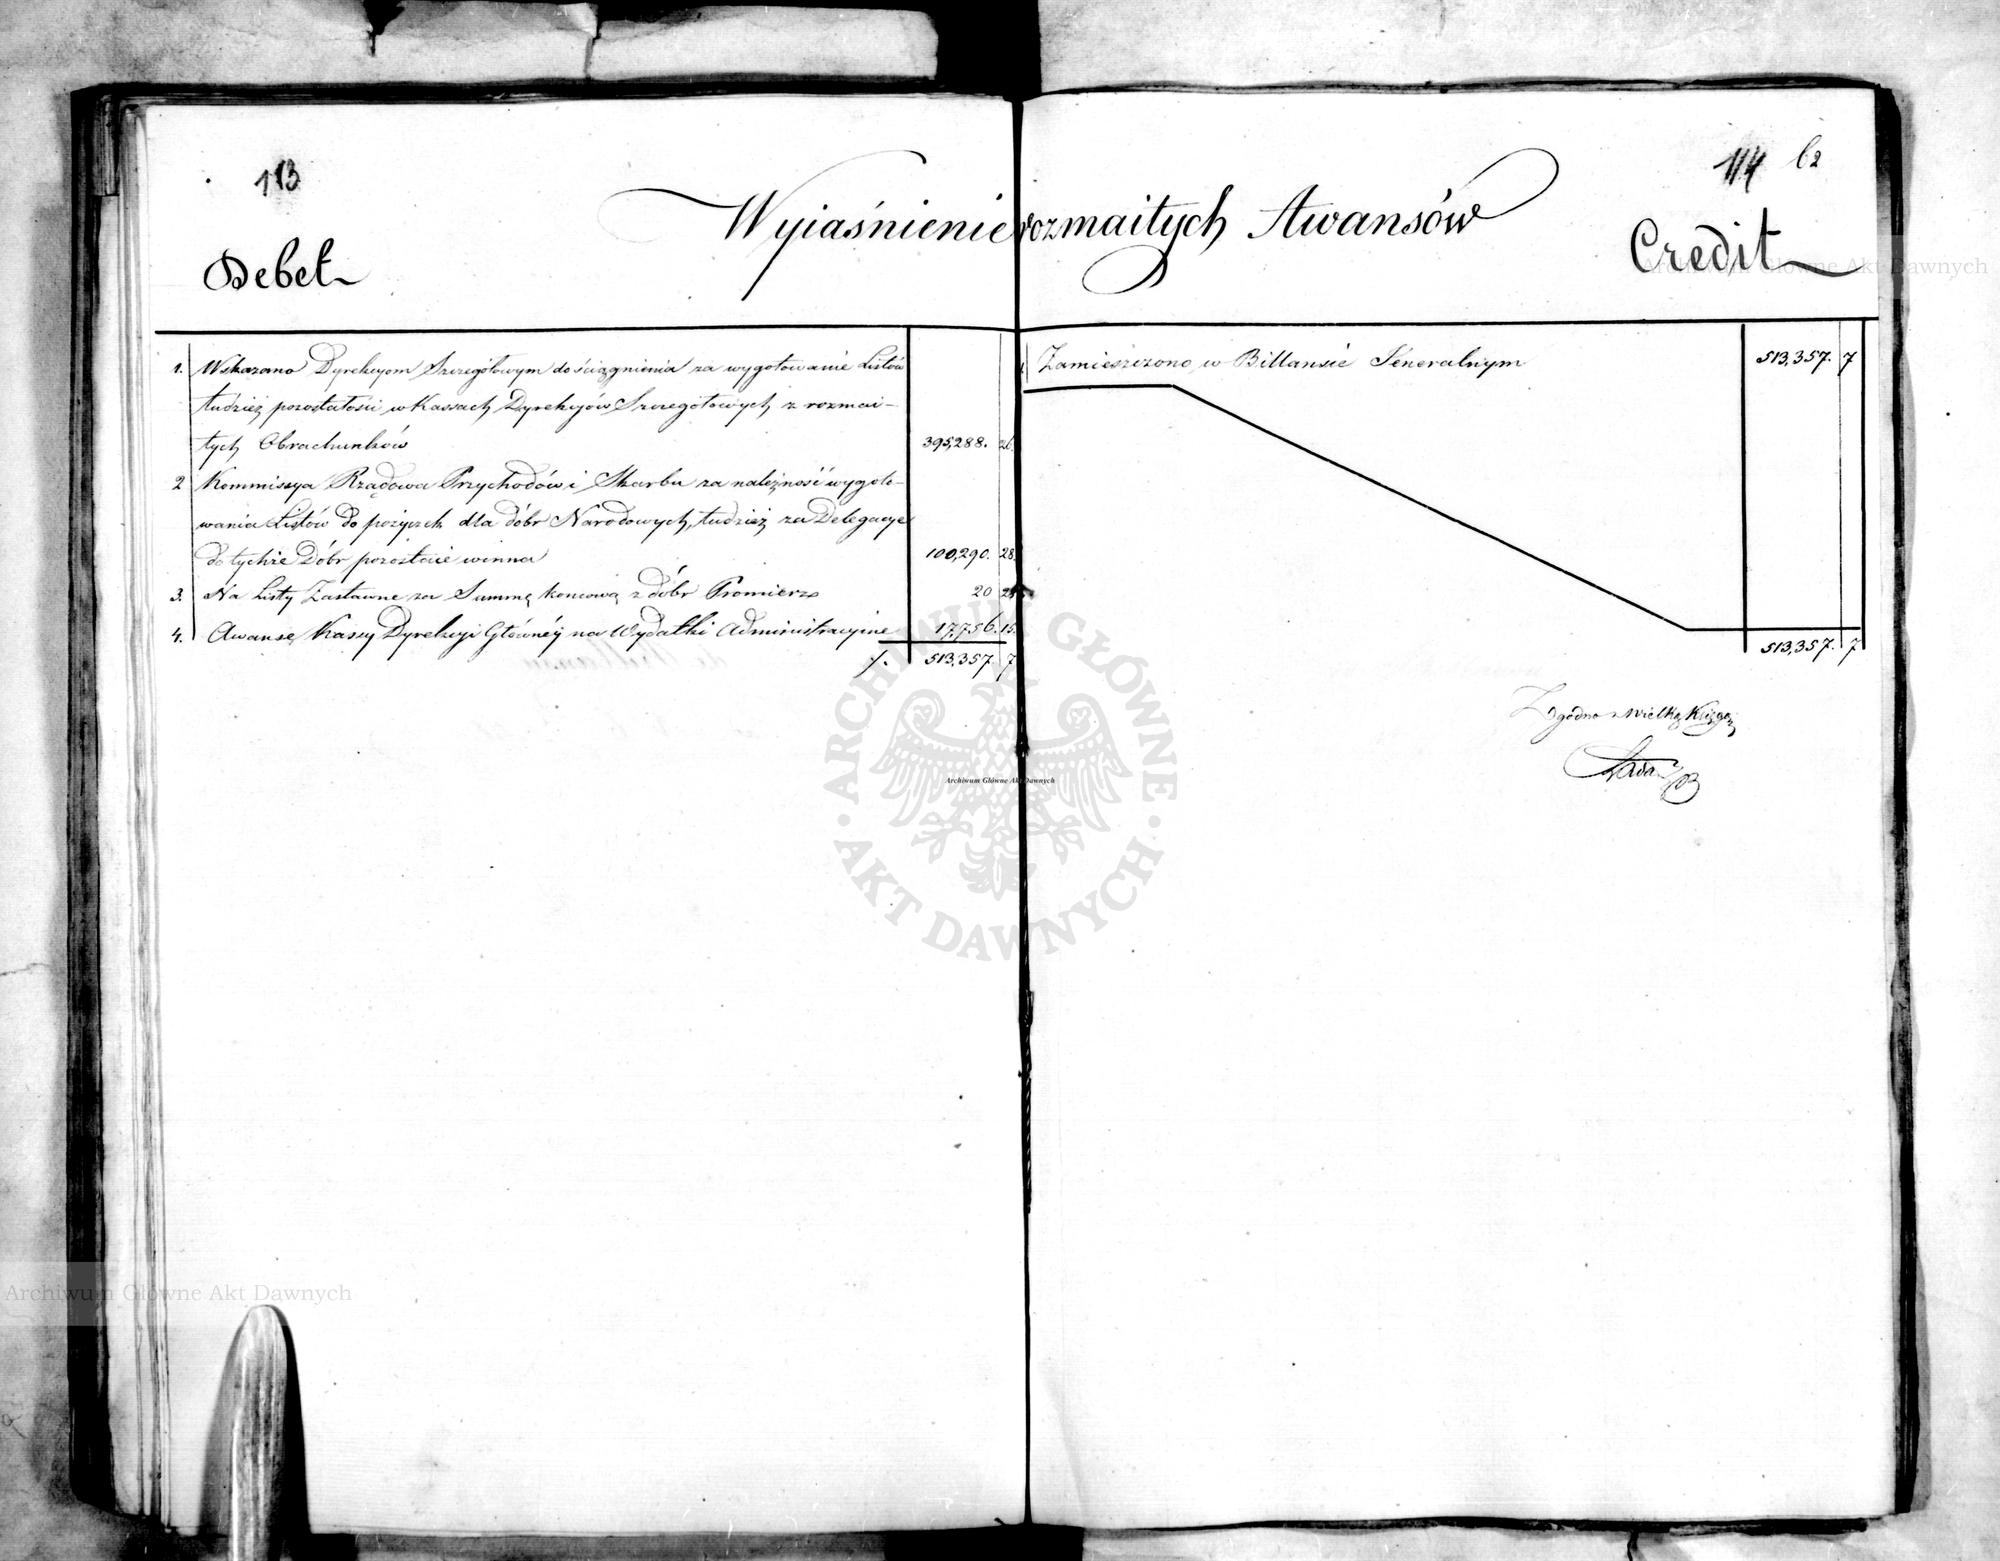 113
114 62
Wyiaśnienie rozmaitych Awansów
Debet
Credit
1. Wskazano Dyrekcyom Szczegółowym do ściągnienia za wygotowanie Listów
tudzież pozostałości w Kassach Dyrekcyów Szczegółowych z rozmai-
tych Obrachunków 395,288. 26.
2 Kommissya Rządowa Przychodów i Skarbu za należność wygoto-
wania Listów do pożyczek dla dóbr Narodowych, tudzież za Delegacye
do tychże Dóbr pozostaie winna 100,290. 28.
3. Na Listy Zastawne za Summę koncową z dóbr Promierz 20
4. Awanse Kassy Dyrekcyi Głównéy na Wydatki Administracyine 17,756. 15.
513,357 7
1. Zamieszczono w Billansie Generalnym 513,357. 7
513,357. 7
Zgodno z Wielką Księgą
ARCHIWUM GŁÓWNE AKT DAWNYCH
Archiwum Główne Akt Dawnych
Archiwum Główne Akt Dawnych
Archiwum Główne Akt Dawnych